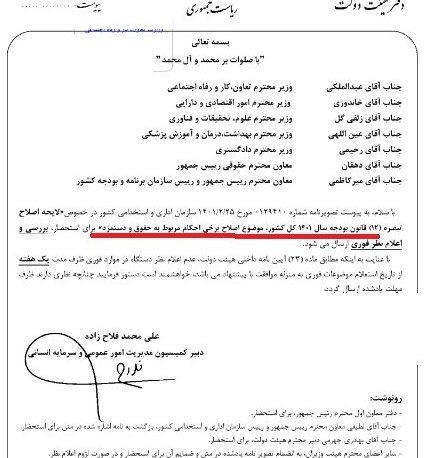 دفتر هیئت دولت
ریاست جمهوری
پیوست
بسمه تعالی
"با صلوات بر محمد و آل محمد"
جناب آقای عبدالملکی وزیر محترم تعاون،کار و رفاه اجتماعی
جناب آقای خاندوزی وزیر محترم امور اقتصادی و دارایی
جناب آقای زلفی گل وزیر محترم علوم، تحقیقات و فناوری
جناب آقای عین اللهی وزیر محترم بهداشت،درمان و آموزش پزشکی
جناب آقای رحیمی وزیر محترم دادگستری
جناب آقای دهقان معاون محترم حقوقی رییس جمهور
جناب آقای میرکاظمی معاون محترم رییس جمهور و رییس سازمان برنامه و بودجه کشور
با سلام، به پیوست تصویرنامه شماره ۰۱۲۹۴۱۰ مورخ ۱۴۰۱/۲/۲۵ سازمان اداری و استخدامی کشور در خصوص«لایحه اصلاح
تبصره (۱۲) قانون بودجه سال ۱۴۰۱ کل کشور، موضوع اصلاح برخی احکام مربوط به حقوق و دستمزد» برای استحضار، بررسی و
اعلام نظر فوری ارسال می شود.
با عنایت به اینکه مطابق ماده (۲۳) آیین نامه داخلی هیئت دولت، عدم اعلام نظر دستگاه در موارد فوری ظرف مدت یک هفته
از تاریخ استعلام موضوعات فوری به منزله موافقت با پیشنهاد می باشد، خواهشمند است دستور فرمایید چنانچه نظری دارند ظرف
مهلت یادشده ارسال گردد.
علی محمد فلاح زاده
دبیر کمیسیون مدیریت امور عمومی و سرمایه انسانی
رونوشت:
- دفتر معاون اول محترم رئیس جمهور، برای استحضار.
- جناب آقای لطیفی معاون محترم رییس جمهور و رییس سازمان اداری و استخدامی کشور، بازگشت به نامه اشاره شده در متن برای استحضار.
- جناب آقای بهادری جهرمی دبیر محترم هیئت دولت، برای استحضار.
- سایر اعضای محترم هیئت وزیران، به انضمام تصویر نامه یادشده در متن و ضمایم آن برای استحضار و در صورت لزوم اعلام نظر.